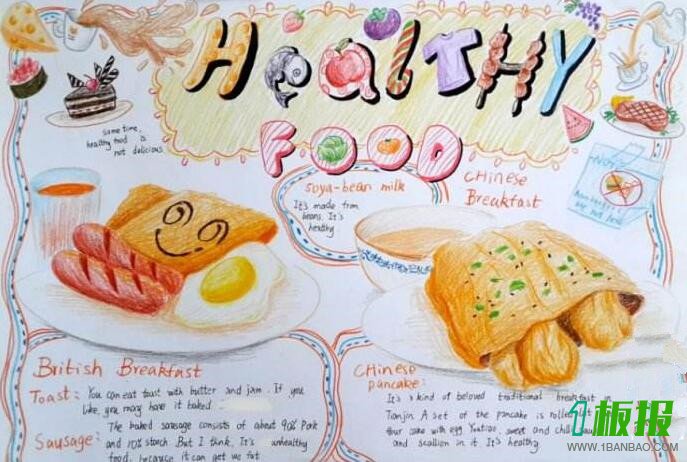 HEALTHY
FOOD
some time,
healthy food is
not delicious
soya-bean milk
It's made from
beans. It's
healthy
CHINESE
Breakfast
British Breakfast
Toast: You can eat toast with butter and jam. If you
like, you may have it baked.
Sausage: The baked sausage consists of about 90% Pork
and 10% starch. But I think, It's unhealthy
food, because it can get us fat
CHINESE
pancake:
It's a kind of beloved traditional breakfast in
Tianjin. A set of the pancake is rolled
flour cake with egg Youtiao, sweet and chilli
and scallion in it. It's healthy
1板报
WWW.1BANBAO.COM